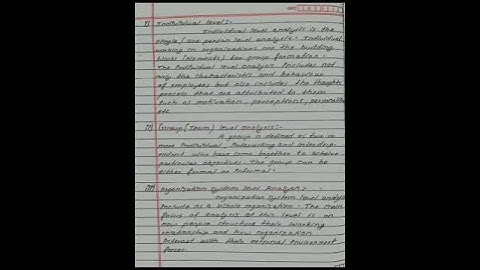 I) Individual level:-
Individual level analysis is the
single/one person level analysis. Individual
working in organizations are the building
blocks (elements) for group formation.
The Individual level analysis includes not
only the characteristic and behaviour
of employees but also includes the thought
process that are attributed to them
such as motivation, perceptions, personality
etc
II) Group (Team) level analysis:-
A group is defined as two or
more individual, interacting and interdep-
endent who have come together to achieve
particular objectives. The group can be
either formal or informal.
III) Organization system level Analysis:-
Organization system level analysis
include as a whole organization. The main
focus of analysis at this level is on
how people structure their working
relationship and how organization
interact with their external environment
forces.